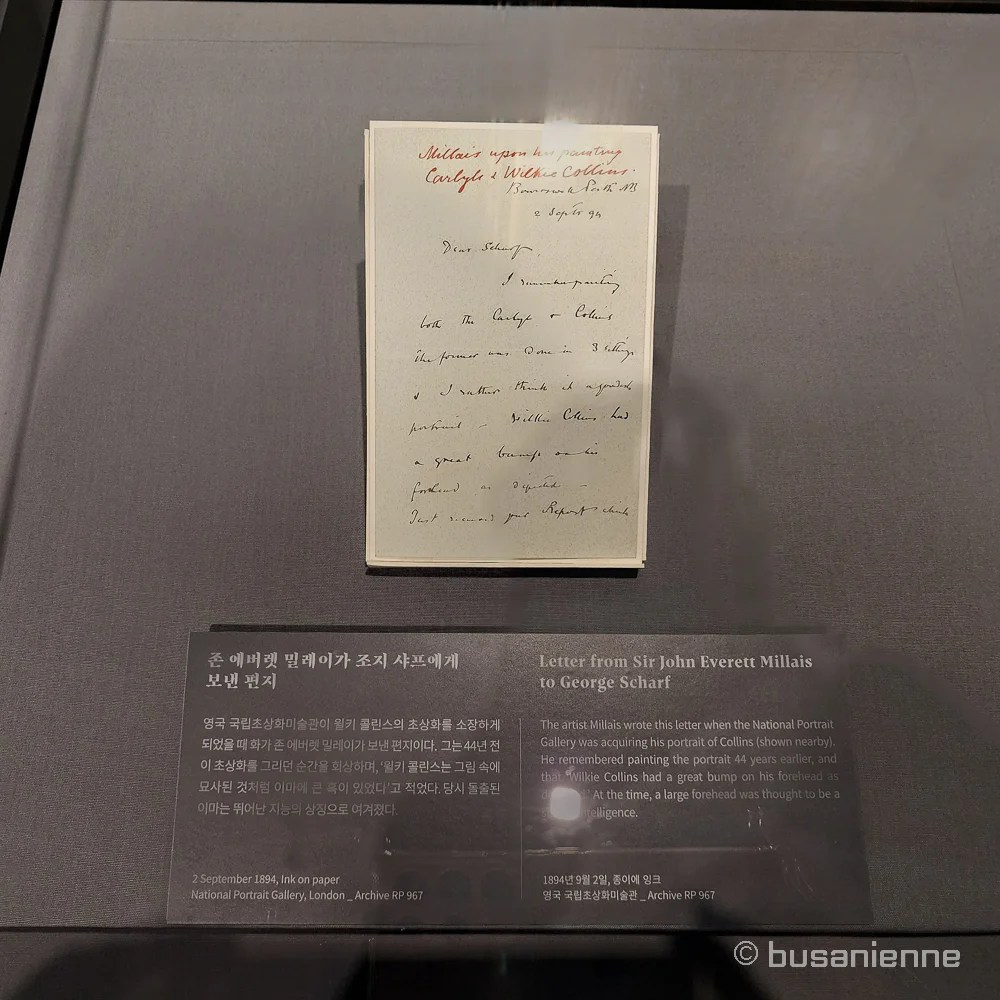 Millais upon his painting
Carlyle & Wilkie Collins.
Perth NB
2 Sept 94
Dear Scharf,
I remember painting
both the Carlyle & Collins
The former was done in 3 sittings
& I rather think it a good
portrait – Wilkie Collins had
a great bump on his
forehead as depicted –
Just received your Report
존 에버렛 밀레이가 조지 샤프에게
보낸 편지
영국 국립초상화미술관이 윌키 콜린스의 초상화를 소장하게
되었을 때 화가 존 에버렛 밀레이가 보낸 편지이다. 그는 44년 전
이 초상화를 그리던 순간을 회상하며, ‘윌키 콜린스는 그림 속에
묘사된 것처럼 이마에 큰 혹이 있었다’고 적었다. 당시 돌출된
이마는 뛰어난 지능의 상징으로 여겨졌다.
2 September 1894, Ink on paper
National Portrait Gallery, London _ Archive RP 967
Letter from Sir John Everett Millais
to George Scharf
The artist Millais wrote this letter when the National Portrait
Gallery was acquiring his portrait of Collins (shown nearby).
He remembered painting the portrait 44 years earlier, and
that ‘Wilkie Collins had a great bump on his forehead as
At the time, a large forehead was thought to be a
1894년 9월 2일, 종이에 잉크
영국 국립초상화미술관 _ Archive RP 967
© busanienne